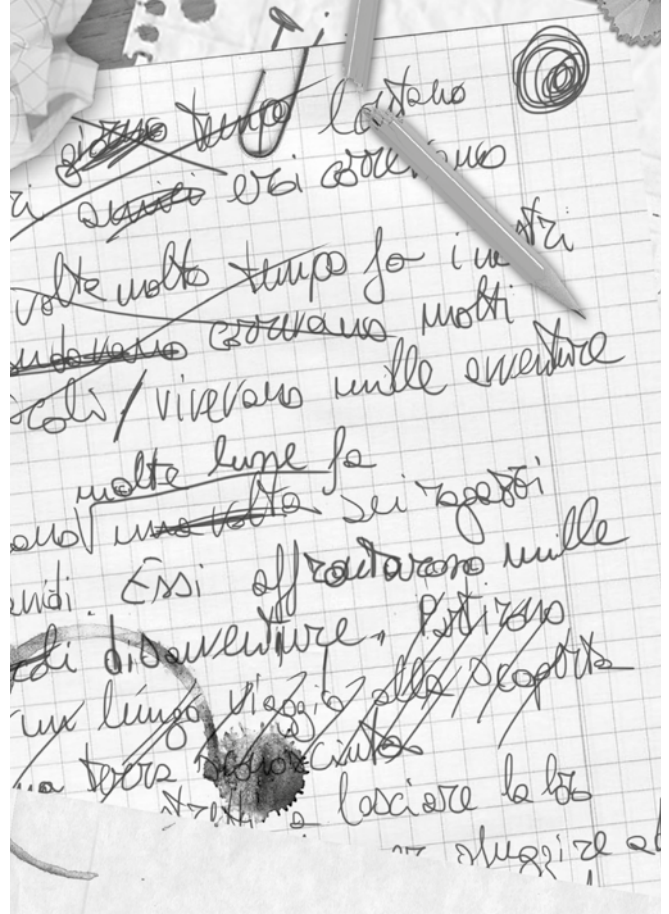 giorno tempo lontano
amici eroi correvano
volte molto tempo fa i nostri
andavano correvano molti
vivevano mille avventure
molte lune fa
una volta sei ragazzi
Essi affrontarono mille
di disavventure. Partirono
un lungo viaggio alla scoperta
terra sconosciuta
a lasciare la loro
sfuggire al